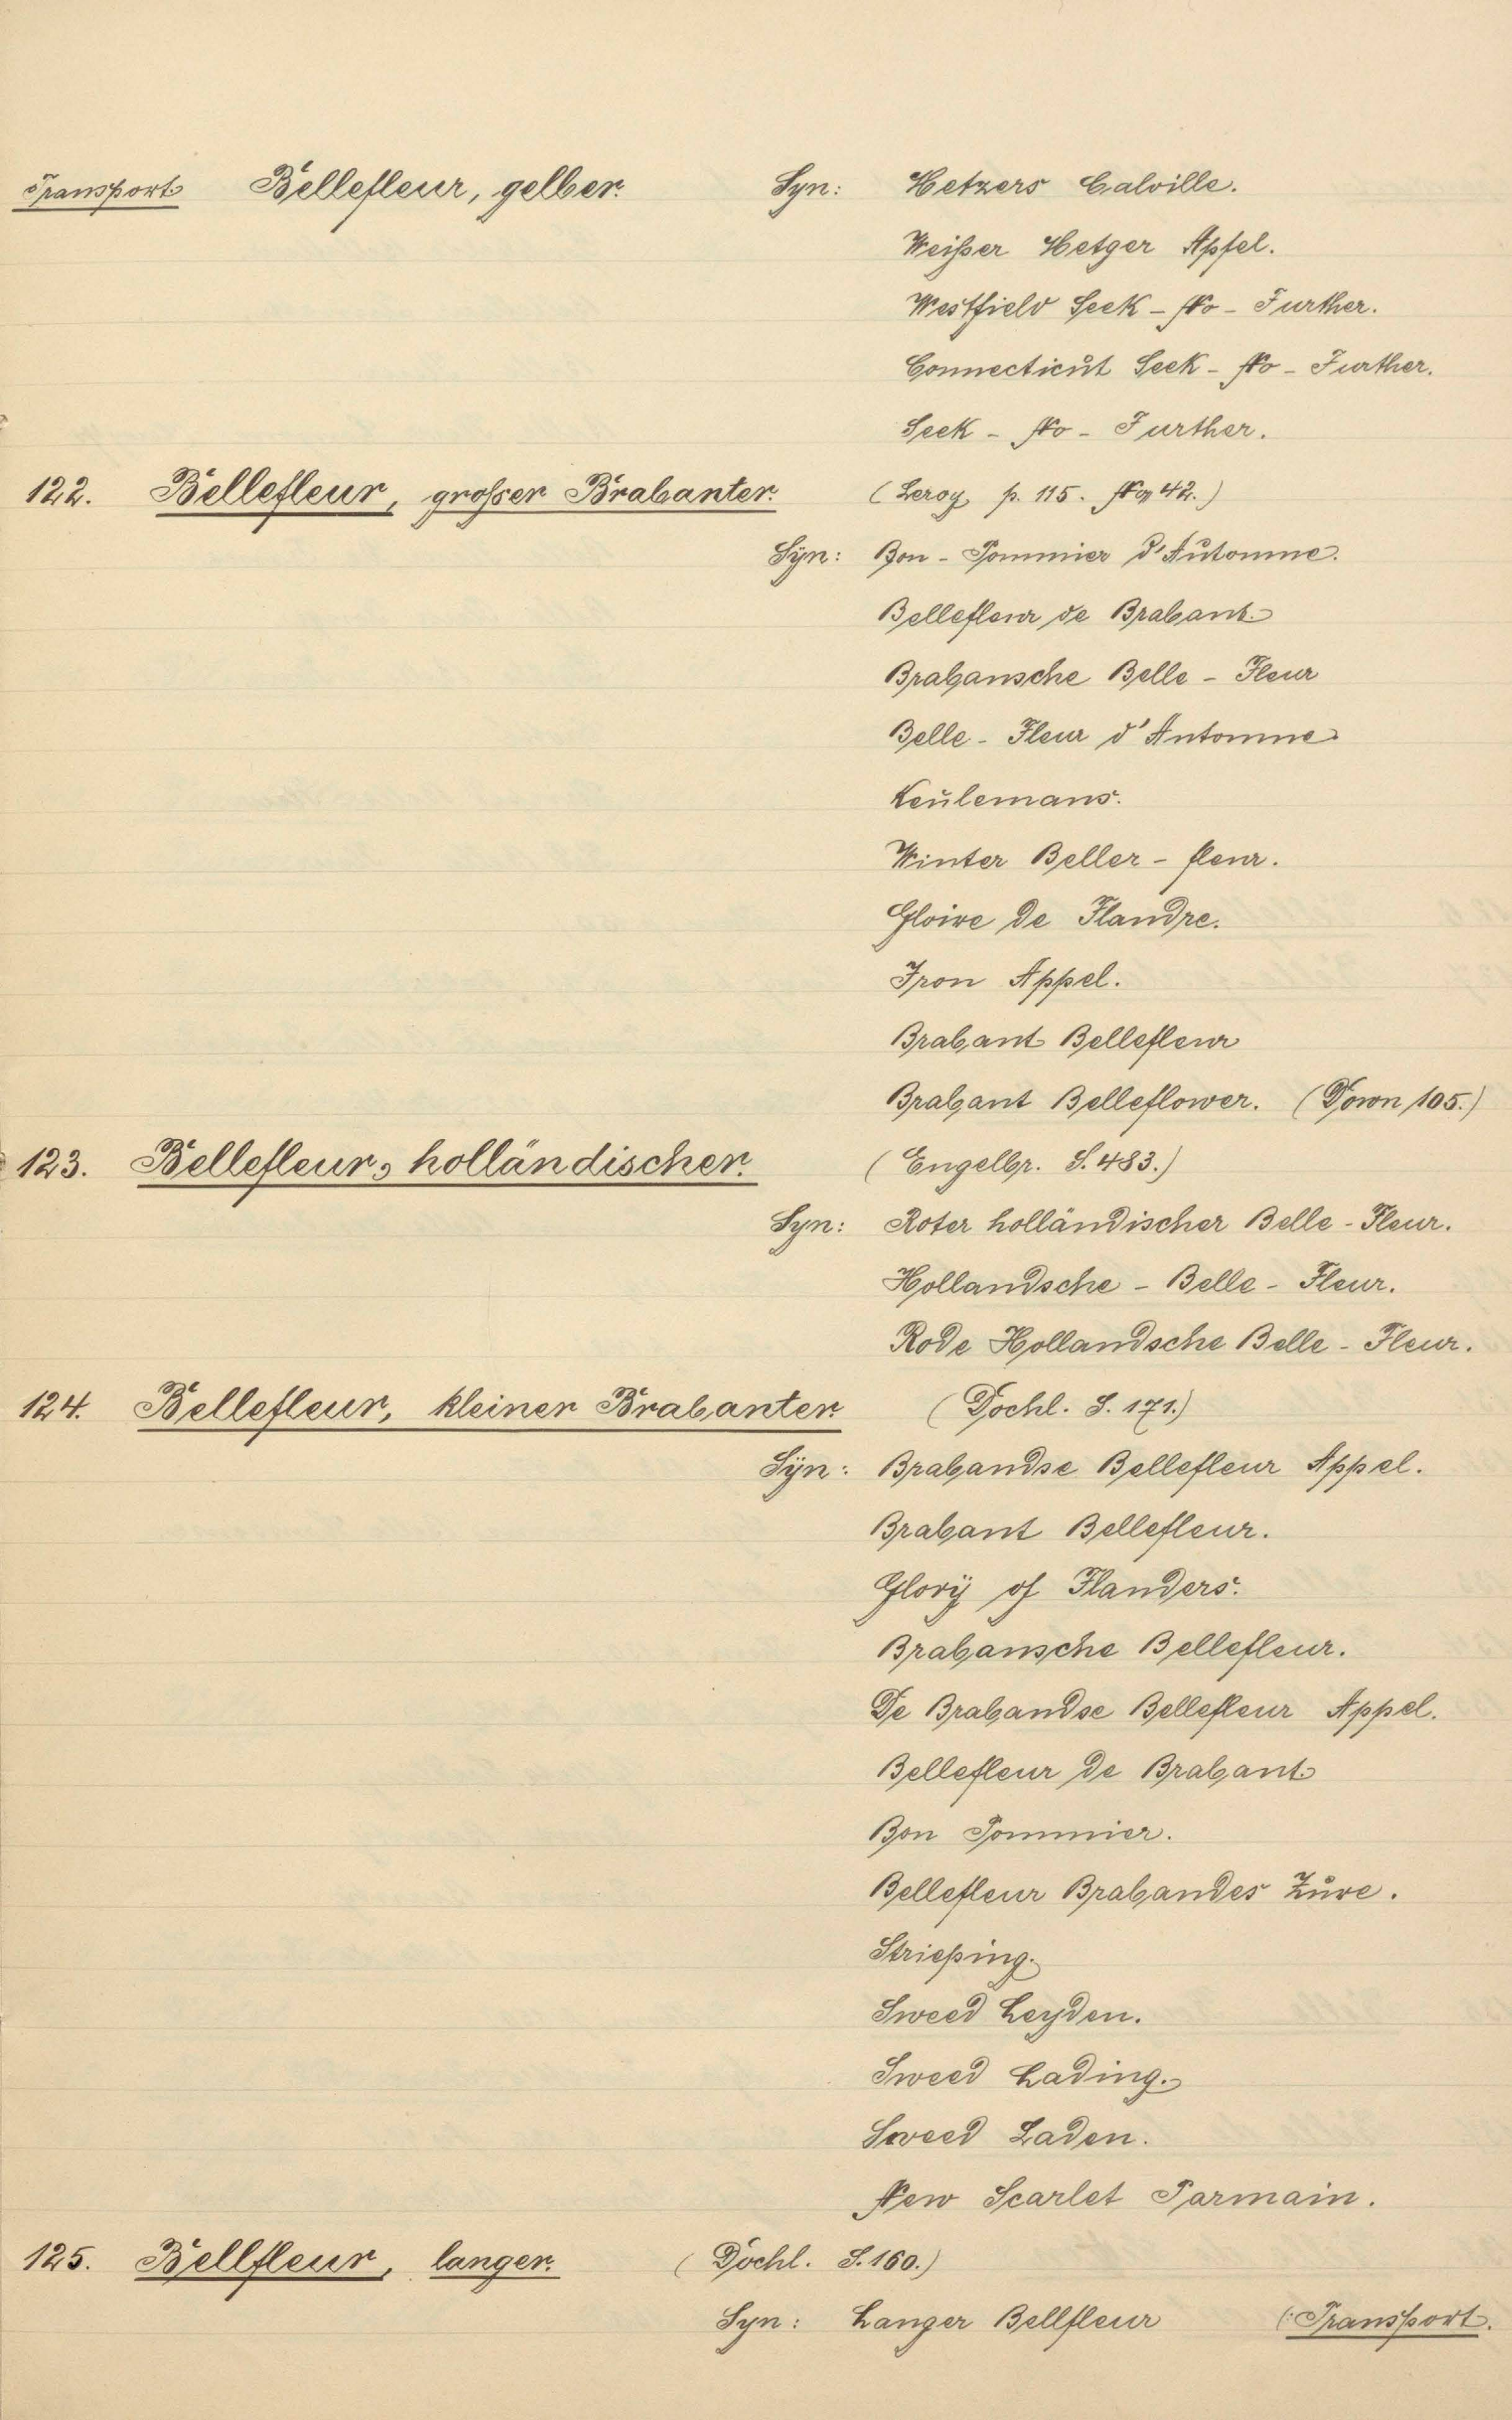 Transport Bellefleur, gelber. Syn: Hetzers Calville.
Weißer Hetger Apfel.
Westfield Seek-No-Further.
Connecticut Seek-No-Further.
Seek-No-Further.
122. Bellefleur, großer Brabanter. (Leroy p. 115. No 42.)
Syn: Bon-Pommier d'Automne.
Bellefleur de Brabant.
Brabansche Belle-Fleur
Belle-Fleur d'Automne
Keulemans.
Winter Beller-fleur.
Gloire de Flandre.
Iron Appel.
Brabant Bellefleur
Brabant Belleflower. (Down 105.)
123. Bellefleur, holländischer. (Engelbr. S. 483.)
Syn: Roter holländischer Belle-Fleur.
Hollandsche-Belle-Fleur.
Rode Hollandsche Belle-Fleur.
124. Bellefleur, kleiner Brabanter. (Dochl. S. 171.)
Syn: Brabandse Bellefleur Appel.
Brabant Bellefleur.
Glory of Flanders.
Brabansche Bellefleur.
De Brabandse Bellefleur Appel.
Bellefleur de Brabant.
Bon Pommier.
Bellefleur Brabandes Zure.
Strießing.
Sweed Leyden.
Sweed Lading.
Sweed Laden.
New Scarlet Parmain.
125. Bellfleur, langer. (Dochl. S. 160.)
Syn: Langer Bellfleur (:Transport.